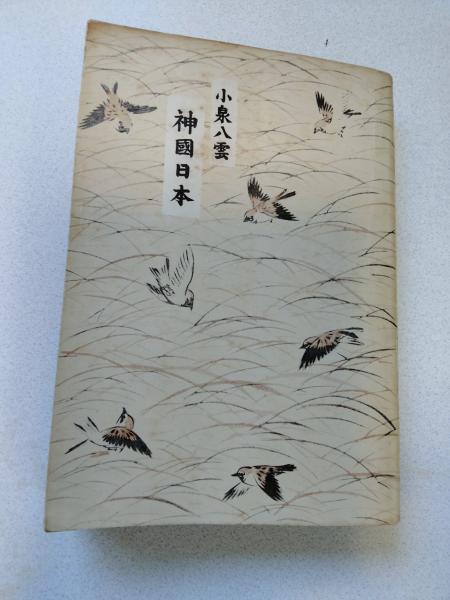 小泉八雲
神國日本